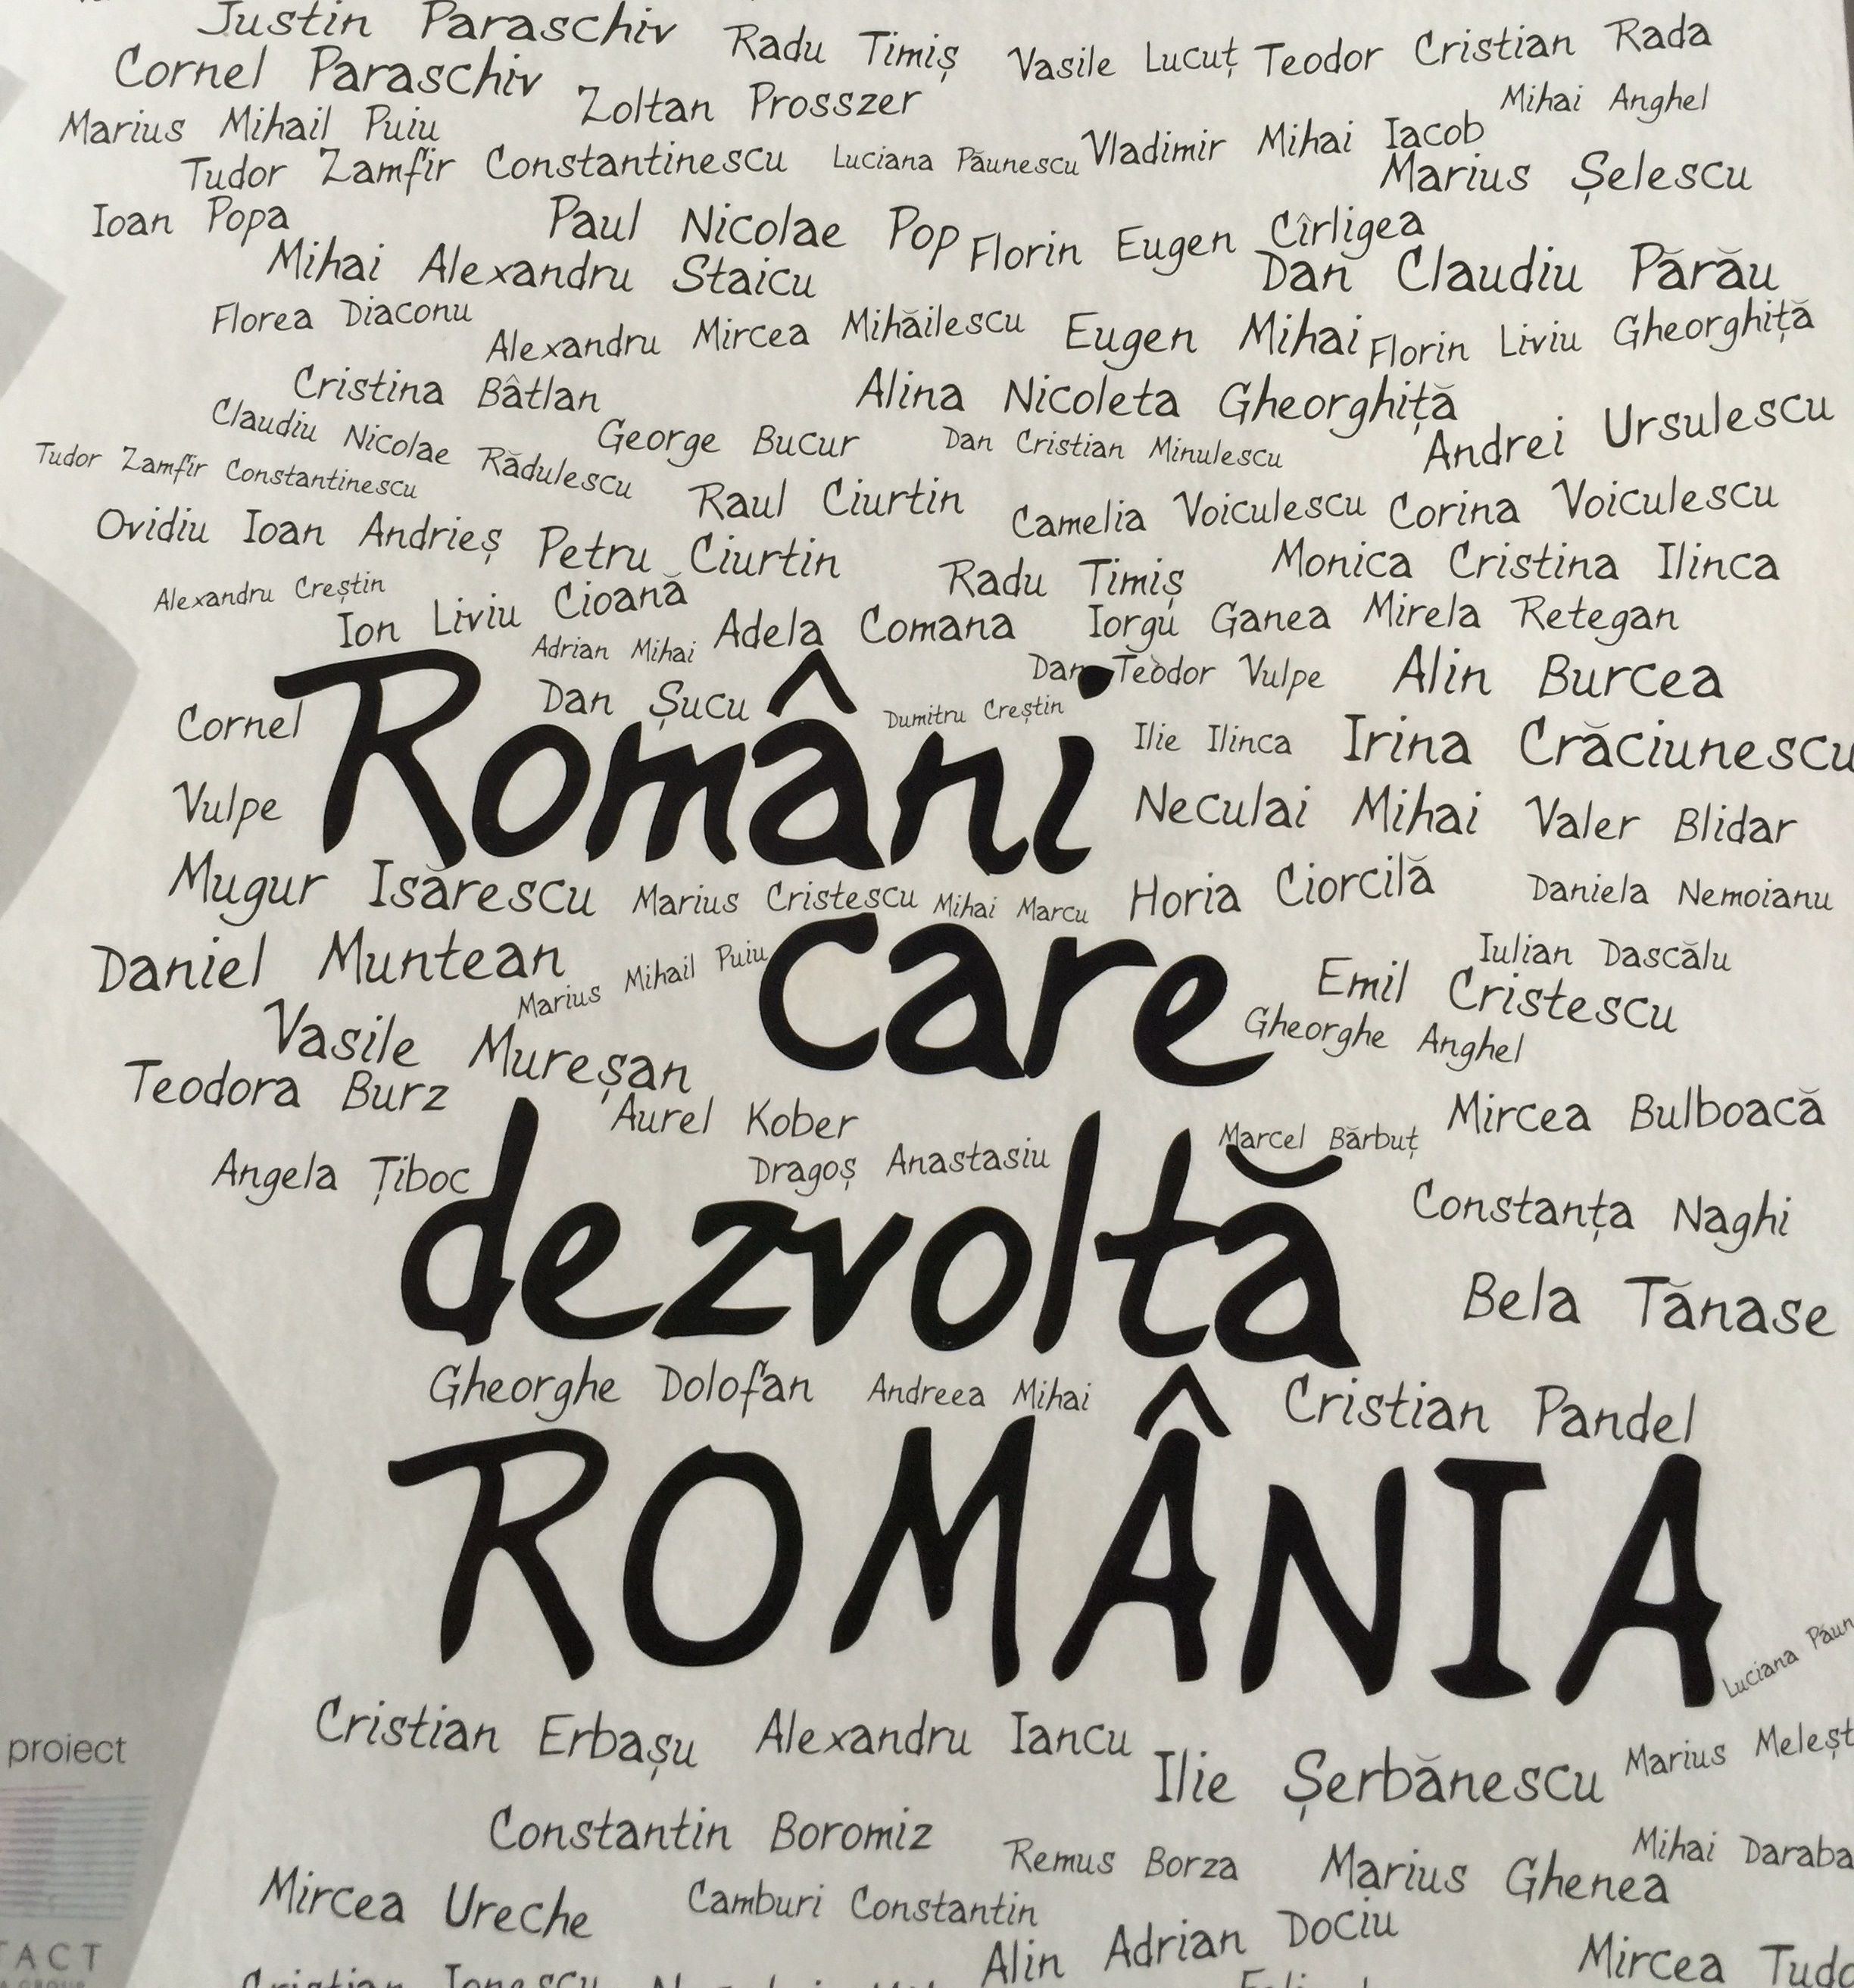 Justin Paraschiv Radu Timiș Vasile Lucuț Teodor Cristian Rada
Cornel Paraschiv Zoltan Prosszer Mihai Anghel
Marius Mihail Puiu Vladimir Mihai Iacob
Tudor Zamfir Constantinescu Luciana Păunescu Marius Șelescu
Ioan Popa Paul Nicolae Pop Florin Eugen Cîrligea
Mihai Alexandru Staicu Dan Claudiu Părău
Florea Diaconu Alexandru Mircea Mihăilescu Eugen Mihai Florin Liviu Gheorghiță
Cristina Bâtlan Alina Nicoleta Gheorghiță Andrei Ursulescu
Claudiu Nicolae Rădulescu George Bucur Dan Cristian Minulescu
Tudor Zamfir Constantinescu Raul Ciurtin Camelia Voiculescu Corina Voiculescu
Ovidiu Ioan Andrieș Petru Ciurtin Radu Timiș Monica Cristina Ilinca
Alexandru Creștin Ion Liviu Cioană Adela Comana Iorgu Ganea Mirela Retegan
Adrian Mihai Dan Teodor Vulpe Alin Burcea
Cornel Dan Șucu Dumitru Creștin Ilie Ilinca Irina Crăciunescu
Români
Vulpe Neculai Mihai Valer Blidar
Mugur Isărescu Marius Cristescu Mihai Marcu Horia Ciorcilă Daniela Nemoianu
Daniel Muntean Marius Mihail Puiu Iulian Dascălu
care
Emil Cristescu
Vasile Mureșan Gheorghe Anghel
Teodora Burz Aurel Kober Marcel Bărbuț Mircea Bulboacă
Angela Țiboc Dragoș Anastasiu Constanța Naghi
dezvoltă
Bela Tănase
Gheorghe Dolofan Andreea Mihai Cristian Pandel
ROMÂNIA
Luciana
Cristian Erbașu Alexandru Iancu Ilie Șerbănescu Marius
proiect
Constantin Boromiz Remus Borza Marius Ghenea Mihai
Mircea Ureche Camburi Constantin Alin Adrian Dociu Mircea
Cristian Ionescu